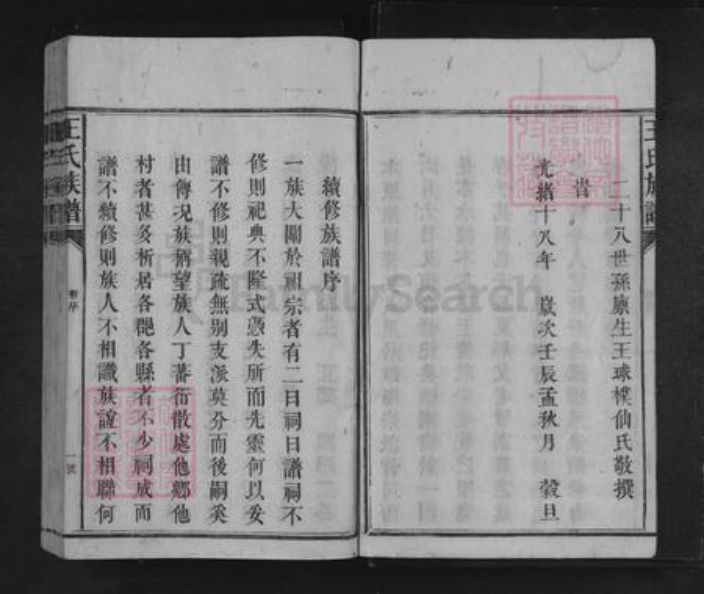 王氏族譜
二十八世孫廩生王球樸仙氏敬撰
旹
光緒十八年 歲次壬辰孟秋月 穀旦
續修族譜序
一族大關於祖宗者有二曰祠曰譜祠不
修則祀典不隆式憑失所而先靈何以妥
譜不修則親疏無别支派莫分而後嗣奚
由傳况族屑望族人丁蕃衍散處他鄉他
村者甚多析居各郡各縣者不少祠成而
譜不續修則族人不相識族誼不相聯何
王氏族譜
一號
FamilySearch